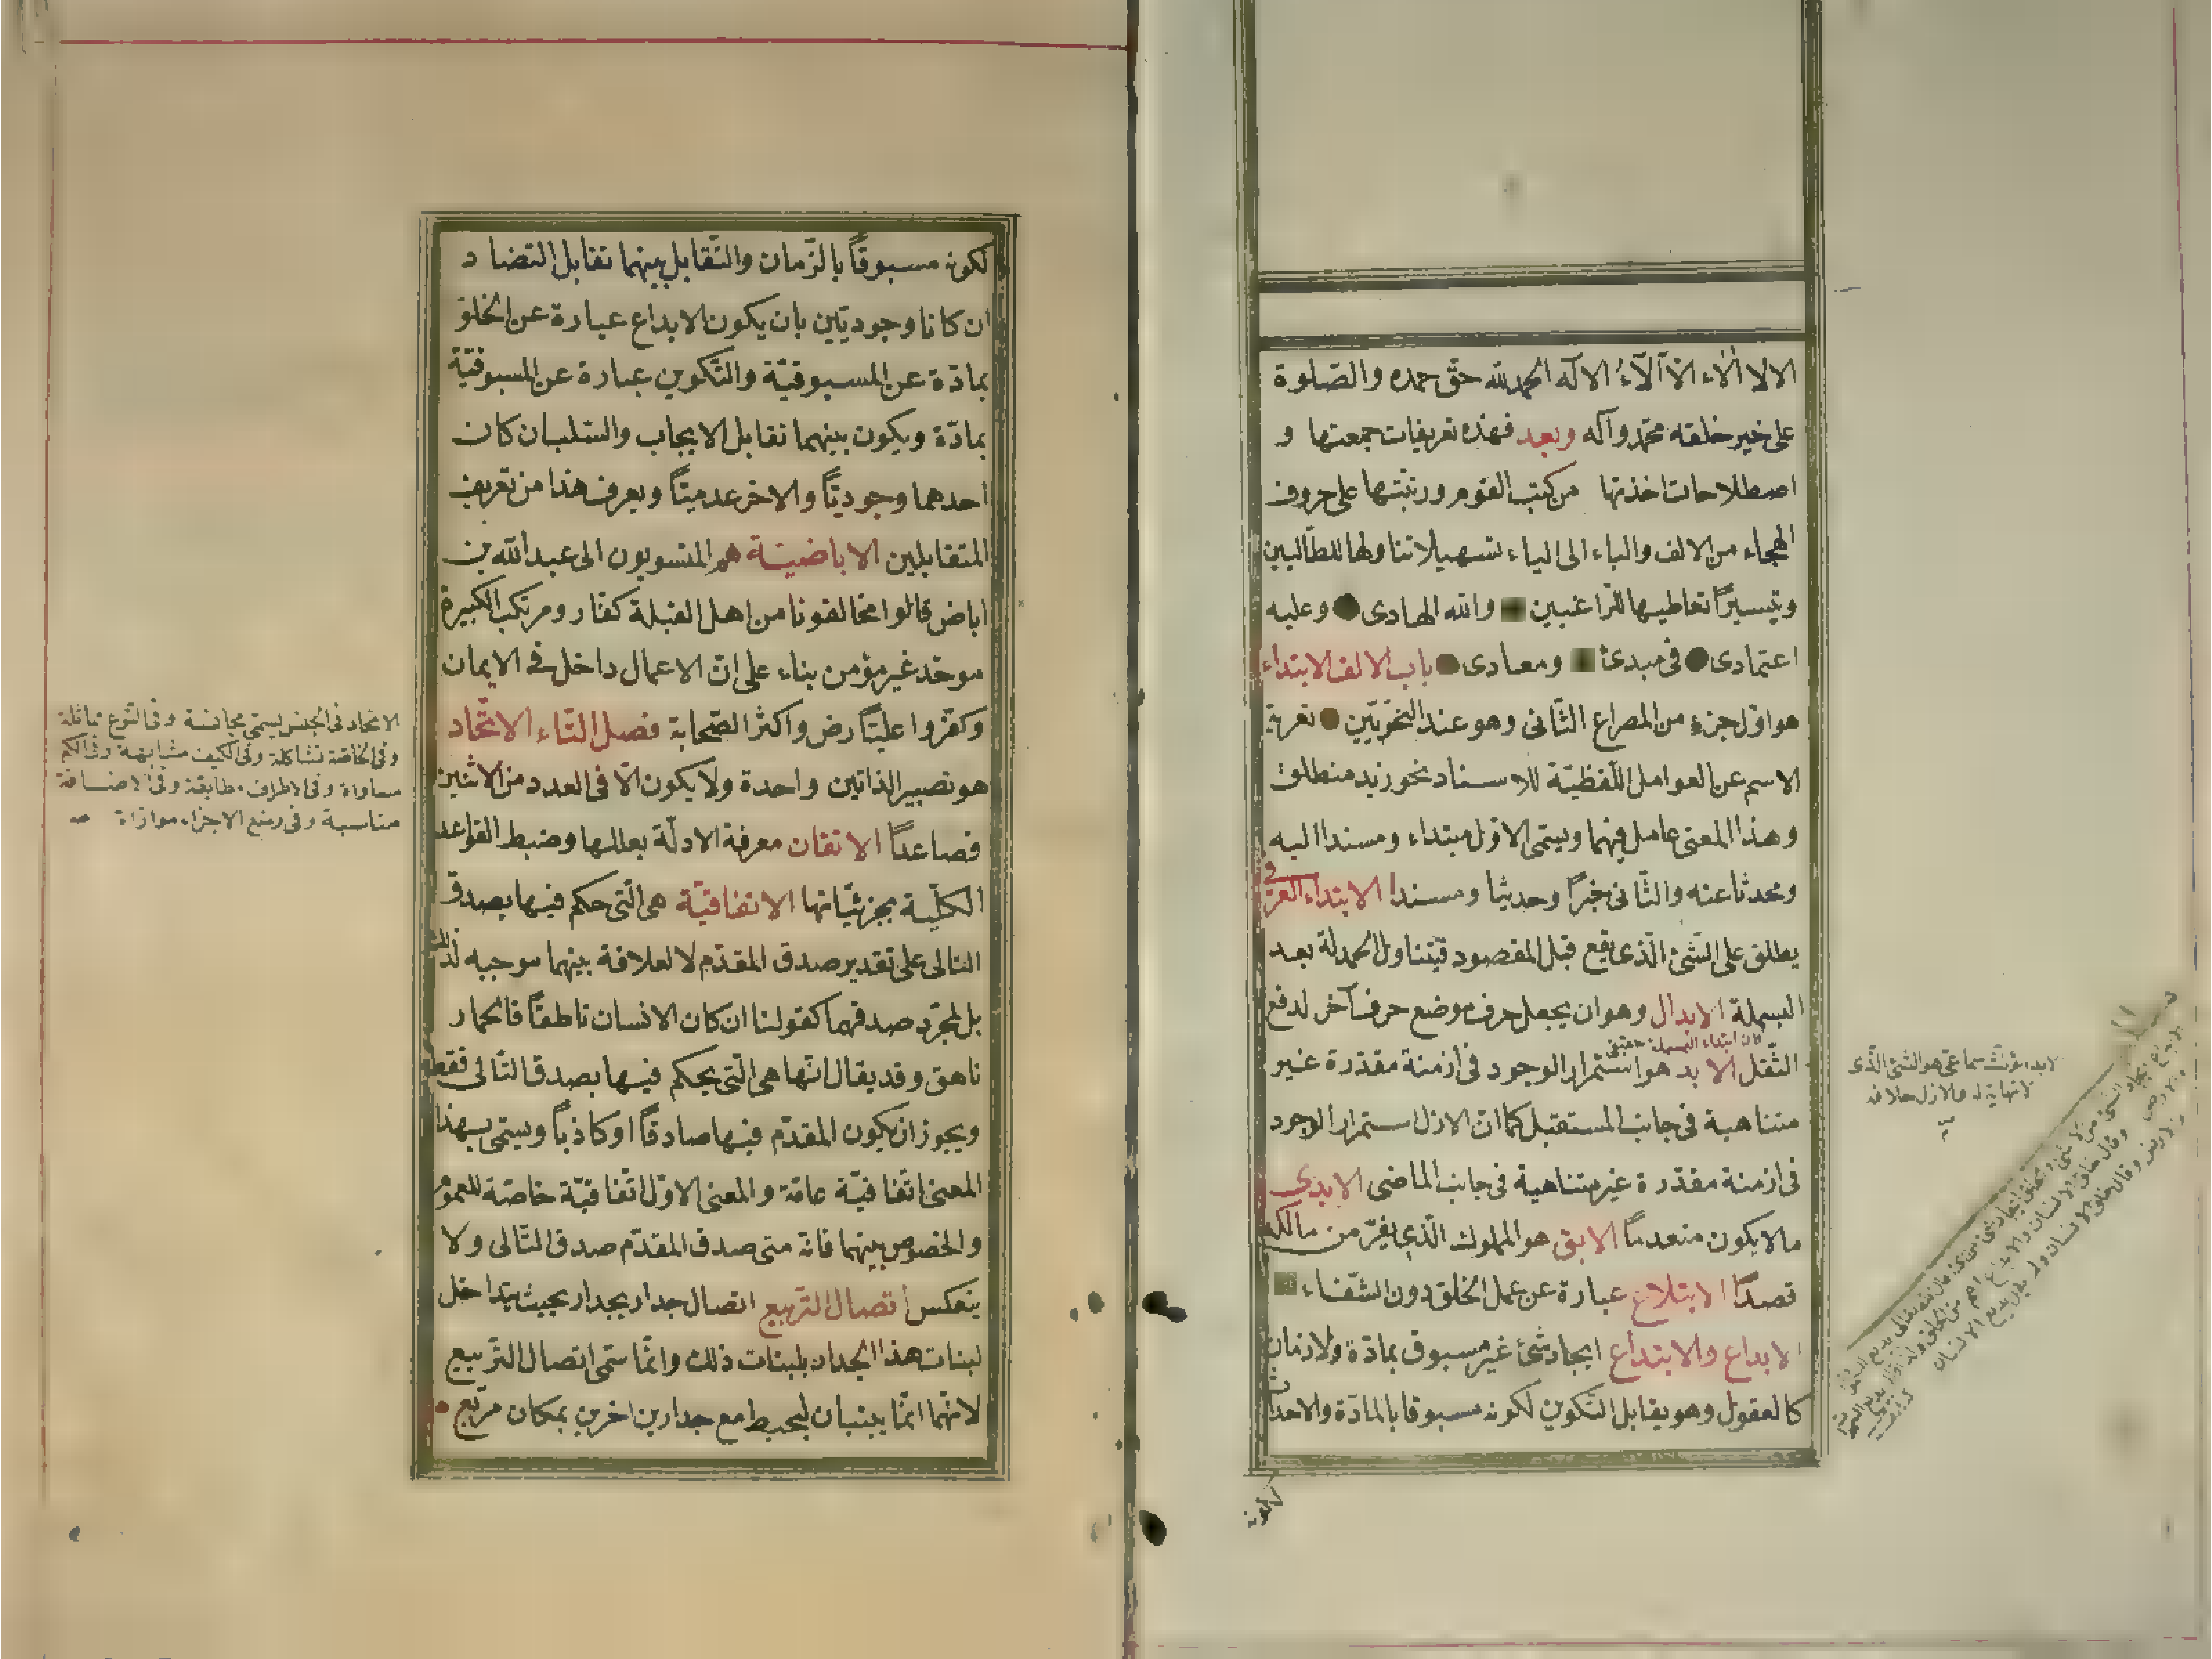 الالا الآلاء الا آلاء الاله الحمد لله حق حمده والصلوة
على خير خلقه محمد وآله وبعد فهذه تعريفات جمعتها و
اصطلاحات اخذتها من كتب القوم ورتبتها على حروف
الهجاء من الالف والباء الى الياء تسهيلا تناولها للطالبين
وتيسيرًا تعاطيها للراغبين والله الهادى وعليه
اعتمادى فى مبدئ ومعادى باب الالف الابتداء
هو اوّل جزء من المصراع الثّانى وهو عند النحويّين تعرية
الاسم عن العوامل اللّفظيّة للاسناد نحو زيد منطلق
وهذا المعنى عامل فيهما ويسمّى الاوّل مبتداء ومسندا اليه
ومحدثا عنه والثّانى خبرًا وحديثا ومسندا الابتداء العرفى
يطلق على الشّئ الّذى يقع قبل المقصود فيتناول الحمدلة بعد
البسملة الابدال وهو ان يجعل حرف موضع حرف آخر لدفع
الثّقل الابد هو استمرار الوجود فى ازمنة مقدّرة غير
متناهية فى جانب المستقبل كما انّ الازل استمرار الوجود
فى ازمنة مقدّرة غير متناهية فى جانب الماضى الابدى
مالا يكون منعدمًا الابق هو المملوك الّذى يفرّ من مالكه
قصدًا الابتلاع عبارة عن عمل الحلق دون الشّفاء
الابداع والابتداع ايجاد شئ غير مسبوق بمادّة ولا زمان
كالعقول وهو يقابل التّكوين لكونه مسبوقا بالمادّة والاحداث
لكونه
لا بد مؤنث سماعى هو الشئ الّذى
لا نهاية له والازل خلافه
لكونه مسبوقًا بالزّمان والتّقابل بينهما تقابل التضاد
ان كانا وجوديّين بان يكون الابداع عبارة عن الخلوّ
بمادّة عن المسبوقيّة والتّكوين عبارة عن المسبوقيّة
بمادّة ويكون بينهما تقابل الايجاب والسّلب ان كان
احدهما وجوديّاً والاخر عدميّاً ويعرف هذا من تعريف
المتقابلين الاباضيّة هم المنسوبون الى عبد الله بن
اباض قالوا مخالفونا من اهل القبلة كفّار ومرتكب الكبيرة
موحّد غير مؤمن بناء على انّ الاعمال داخل فى الايمان
وكفّروا عليّاً رض واكثر الصّحابة فصل التّاء الاتّحاد
هو تصيير الذاتين واحدة ولا يكون الّا فى العدد من الاثنين
فصاعداً الاتقان معرفة الادلّة بعللها وضبط القواعد
الكلّيّة بجزئيّاتها الاتفاقيّة هى الّتى حكم فيها بصدق
التالى على تقدير صدق المقدّم لا لعلاقة بينهما موجبه لذلك
بل لمجرّد صدقهما كقولنا ان كان الانسان ناطقاً فالحمار
ناهق وقد يقال انّها هى الّتى يحكم فيها بصدق التّالى فقط
ويجوز ان يكون المقدّم فيها صادقاً او كاذباً ويسمّى بهذا
المعنى اتفاقيّة عامّة والمعنى الاوّل اتّفاقيّة خاصّة للعموم
والخصوص بينهما فانّه متى صدق المقدّم صدق التّالى ولا
ينعكس اتصال التّربيع اتصال جدار بجدار بحيث يتداخل
لبنات هذا الجدار بلبنات ذلك وانّما سمّى اتصال التّربيع
لانّهما انّما يبنيان ليحيط مع جدارين اخرين بمكان مربّع
الاتحاد فى الجنس يسمّى مجانسة وفى النّوع مماثلة
وفى الخاصّة تشاكلة وفى الكيف مشابهة وفى الكم
مساواة وفى الاطراف مطابقة وفى الاضافة
مناسبة وفى وضع الاجزاء موازاة